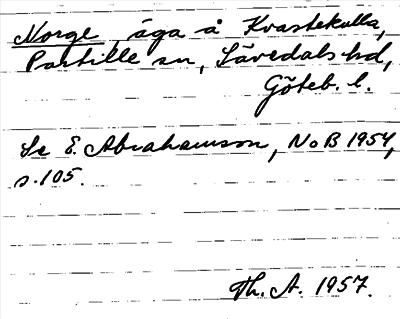 Norge, äga å Kvastekulla,
Partille sn, Sävedals hd,
Göteb. l.
Se E. Abrahamson, NoB 1954,
s. 105.
Th. A. 1957.